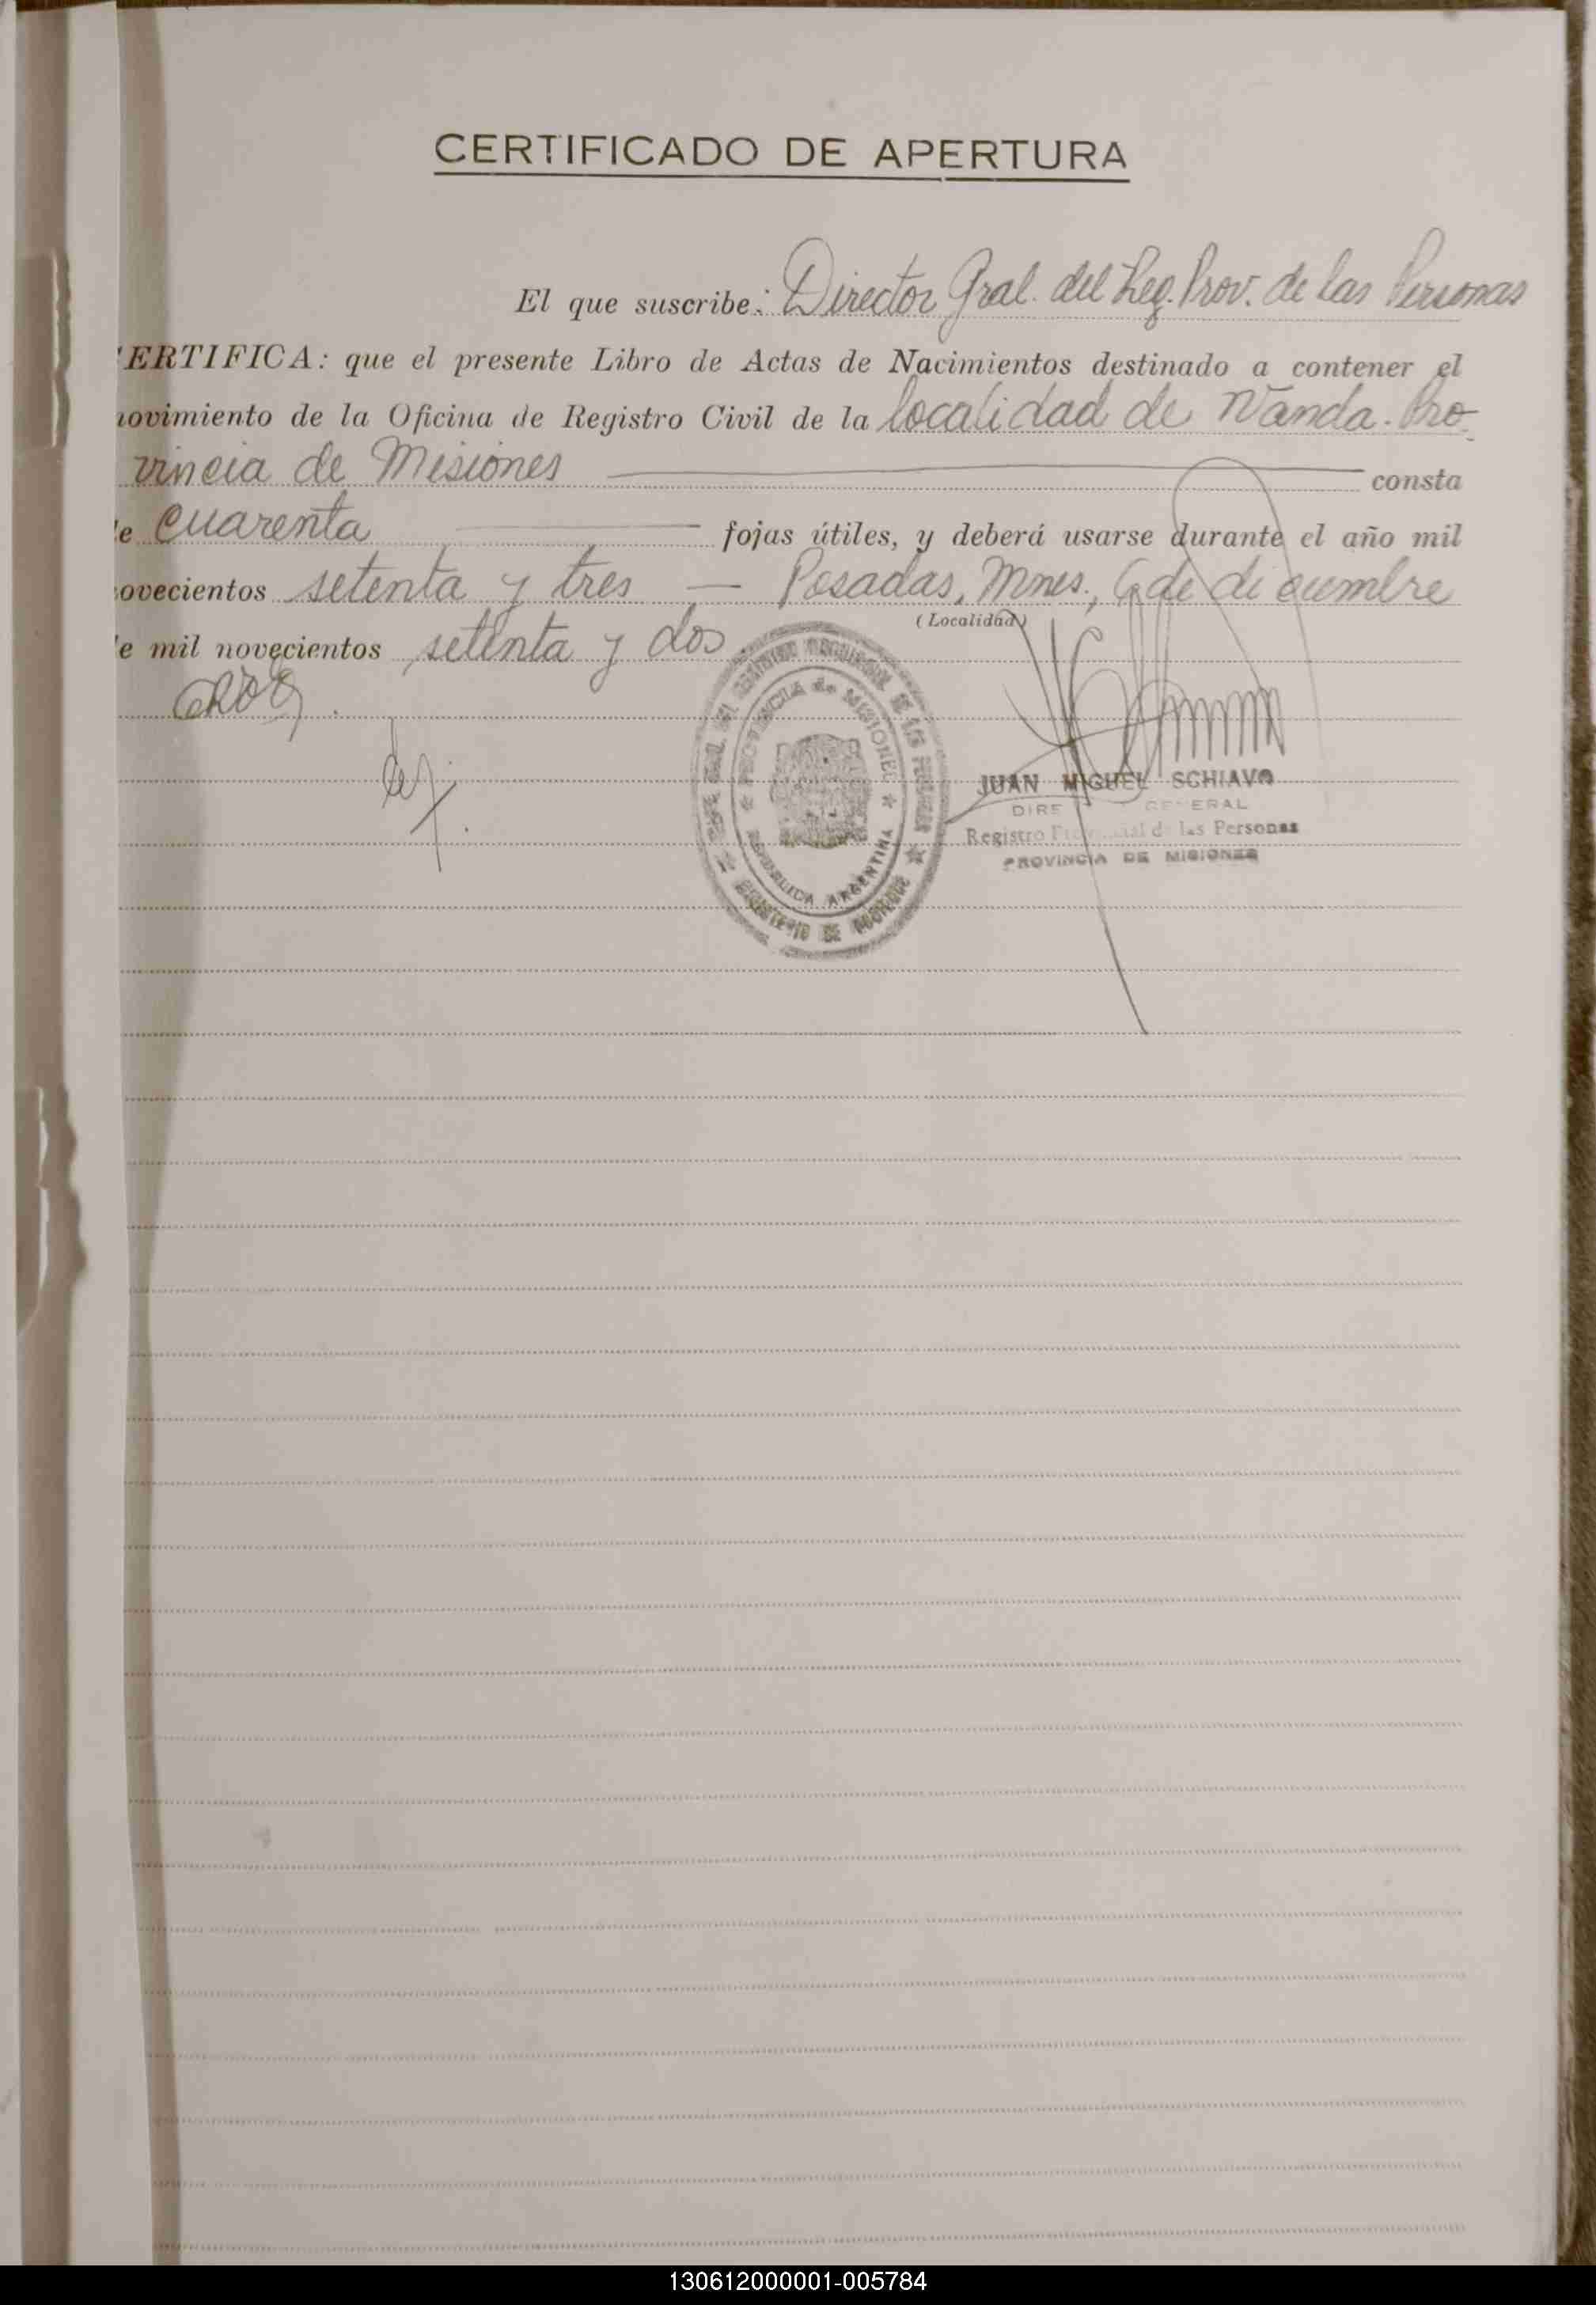 CERTIFICADO DE APERTURA
El que suscribe: Director Gral. del Reg. Prov. de las Personas
ERTIFICA: que el presente Libro de Actas de Nacimientos destinado a contener el
ovimiento de la Oficina de Registro Civil de la localidad de Wanda. Pro-
vincia de Misiones consta
e cuarenta fojas útiles, y deberá usarse durante el año mil
ovecientos setenta y tres — Posadas, Mnes., 6 de diciembre
(Localidad)
e mil novecientos setenta y dos
PROVINCIA de MISIONES
REPUBLICA ARGENTINA
MINISTERIO DE GOBIERNO
JUAN MIGUEL SCHIAVO
DIRE GENERAL
Registro Provincial de las Personas
PROVINCIA DE MISIONES
130612000001-005784